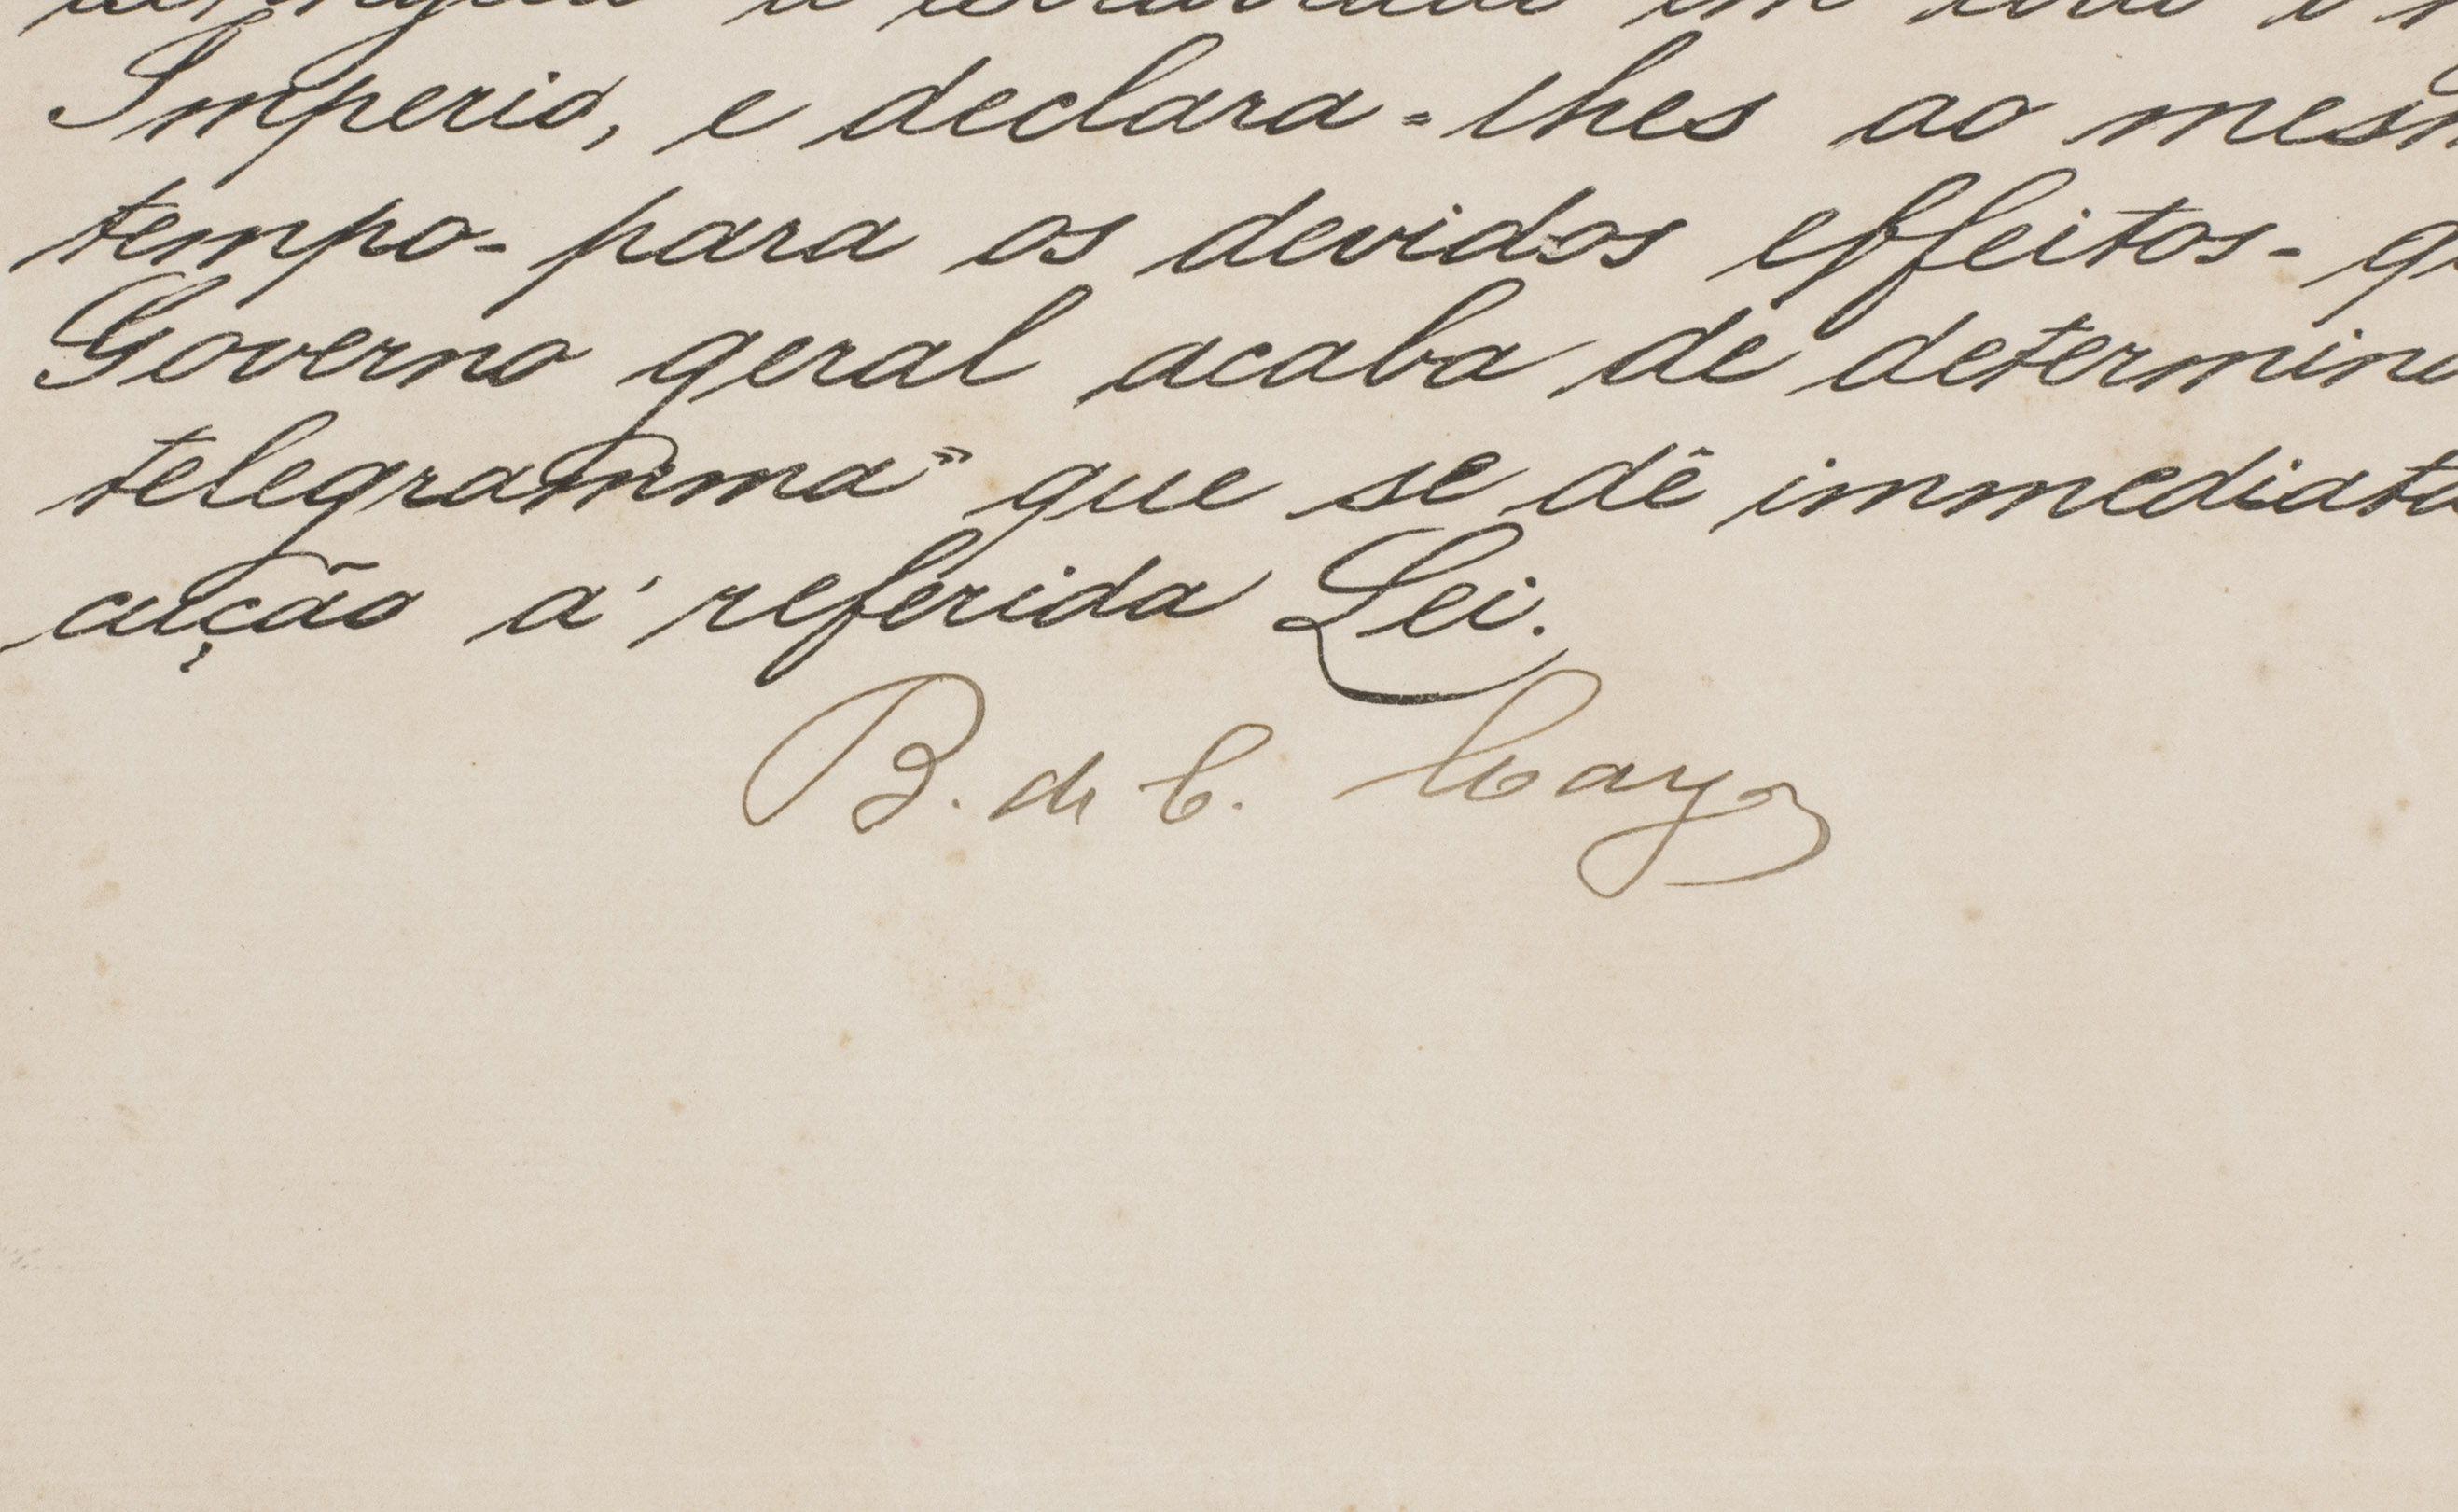 Imperio, e declara-lhes ao mesm
tempo - para os devidos effeitos - qu
Governo geral acaba de determina
telegramma" que se dê immediata
cução á referida Lei.
B. de C.